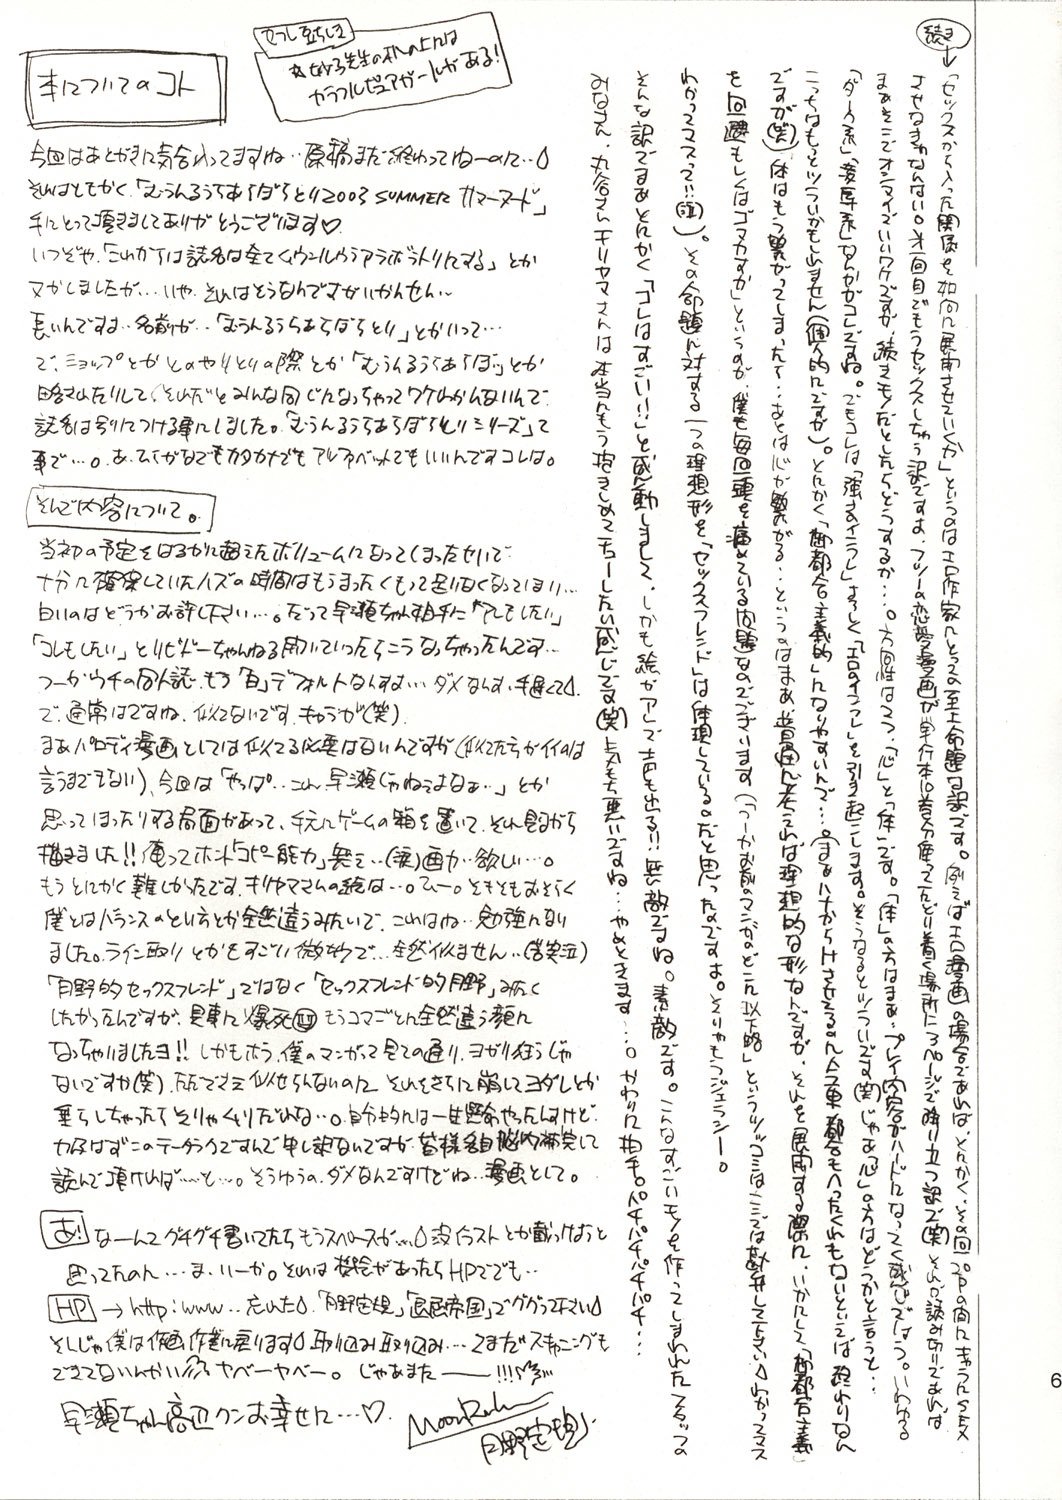 続き→
「セックスから入った関係を如何に展開させていくか」というのはエロ作家にとって至上命題な訳です。例えばエロ漫画の場合であれば、とにかく、その回20Pの間にキャラにSEX
させなきゃなんない。オー回目でもうセックスしちゃう訳ですよ、フツーの恋愛漫画が単行本10巻分使ってたどり着く場所に3ページで降り立つ訳で(笑)それが読み切りであれば
まぁそこでオシマイでいいワケですが、続きモノだとしたらどうするか…。方向性は2つ、「心」と「体」です。「体」の方はまぁ、プレイ内容がハードになってく感じでしょう。いわゆる
「ダーク系」「凌辱系」なんかがコレですね。でもコレは「強さのインフレ」よろしく「エロのインフレ」を引き起こします。そうなるとツラいです(笑)じゃあ「心」の方はどうかと言うと…
こっちはもっとツラいかもしれません(個人的にですが)。とにかく「御都合主義的」になりやすいんで…。(まぁハナからHさせてるのに今更都合もへったくれもないといえば終わりなん
ですが(笑)体はもう繋がってしまったと…あとは心が繋がる…というのはまぁ普通に考えれば理想的な形なんですが、それを展開する際に、いかにして「御都合主義」
を回避もしくはゴマカすか」というのが、僕も毎回頭を痛めている問題なのでございます(「つーかお前のマンガのどこが(以下略)」というツッコミはここでは勘弁して下さい わかってマス
わかってマスって!!(泣))。その命題に対する一つの理想形を「セックスフレンド」は体現している。だと思ったのですよ。そりゃもうジェラシー。
そんな訳でまぁとにかく「コレはすごい!!」と感動しまして、しかも絵がアレで声も出る!!無敵ですね。素敵です。こんなすごいモノを作ってしまわれたスタッフの
みなさん、丸谷さんキリヤマさんには本当にもう抱きしめてチューしたい感じです(笑)気持ち悪いですね…やめときます…。かわりに拍手。パチパチパチパチパチ…
本についてのコト
今回はあとがきに気合入ってますね…原稿まだ終わってねーのに…
それはともかく「むうんるうらあらばらとり2003 SUMMER サマーヌード」
手にとって頂きましてありがとうございます♡
いつぞや、「これからは誌名は全て<ウンルウラアラボラトリ>にする」とか
ヌかしましたが…いや、それはそうなんですがいかんせん〜
長いんですよ…名前が…「むうんるうらあらばらとり」とかいって…
で、ショップとかとのやりとりの際とか「むうんるうらあらぼ」とか
略されたりして、それだとみんな同じになっちゃってワケわかんないんで、
誌名は別につける事にしました。「むうんるうらあらばらとりシリーズ」って
事で…。あ、ひらがなでもカタカナでもアルファベットでもいいんですコレは。
そんで内容について。
当初の予定をはるかに超えたボリュームになってしまったせいで
十分に確保していたハズの時間はもうまったくもって足りなくなってしまい…
白いのはどうかお許し下さい…。だって早瀬ちゃん相手に「アレもしたい」
「コレもしたい」とリビドーちゃんねる開いていったらこうなっちゃったんです…
つーかウチの同人誌、もう「白」デフォルトなんすよ…ダメなんす、手遅くて
で、通常はですね、似てないです、キャラが(笑)
まぁパロディ漫画としては似てる必要はないんですが(似てた方がイイのは
言うまでもない)、今回は「やっぱ…こんな早瀬じゃねぇよなぁ…」とか
思ってしまったりする局面があって、手元にゲームの箱を置いて、それ見ながら
描きました!!俺ってホント「コピー能力」無え…(涙)画力…欲しい…。
もうとにかく難しかったです、キリヤマさんの絵は…。ひー。そもそもおそらく
僕とはバランスのとり方とか全然違うみたいで、これはね…勉強になり
ました。ライン取りとかもすごい微妙で…全然似ません…(苦笑泣)
「月野的セックスフレンド」ではなく「セックスフレンド的月野」みたく
したかったんですが、見事に爆死(泣)もうコマごとに全然違う顔に
なっちゃいましたヨ!!しかもホラ、僕のマンガって見ての通り、ヨガり狂うじゃ
ないですか(笑)、ただでさえ似せらんないのに、それをさらに崩してヨダレとか
垂らしちゃったらそりゃムリだわな…。自分的には一生懸命やったんすけど、
力及ばずこのテータラクですんで申し訳ないですが、皆様各自脳内補完して
読んで頂ければ…と…。そうゆうの、ダメなんですけどね…漫画として。
あ!なーんてグチグチ書いてたらもうスペースが… 没イラストとか載っけようと
思ってたのに…ま、いーか。それは機会があったらHPででも…
HP→http:www…忘れた 「月野定規」「退屈帝国」でググって下さい
そいじゃ僕は作画作業に戻ります 取り込み取り込み…てまだスキャニングも
できてないんかい ヤベーヤベー。じゃあまた―――!!!
早瀬ちゃん高辺クンお幸せに…♡
MoonRuler
月野定規